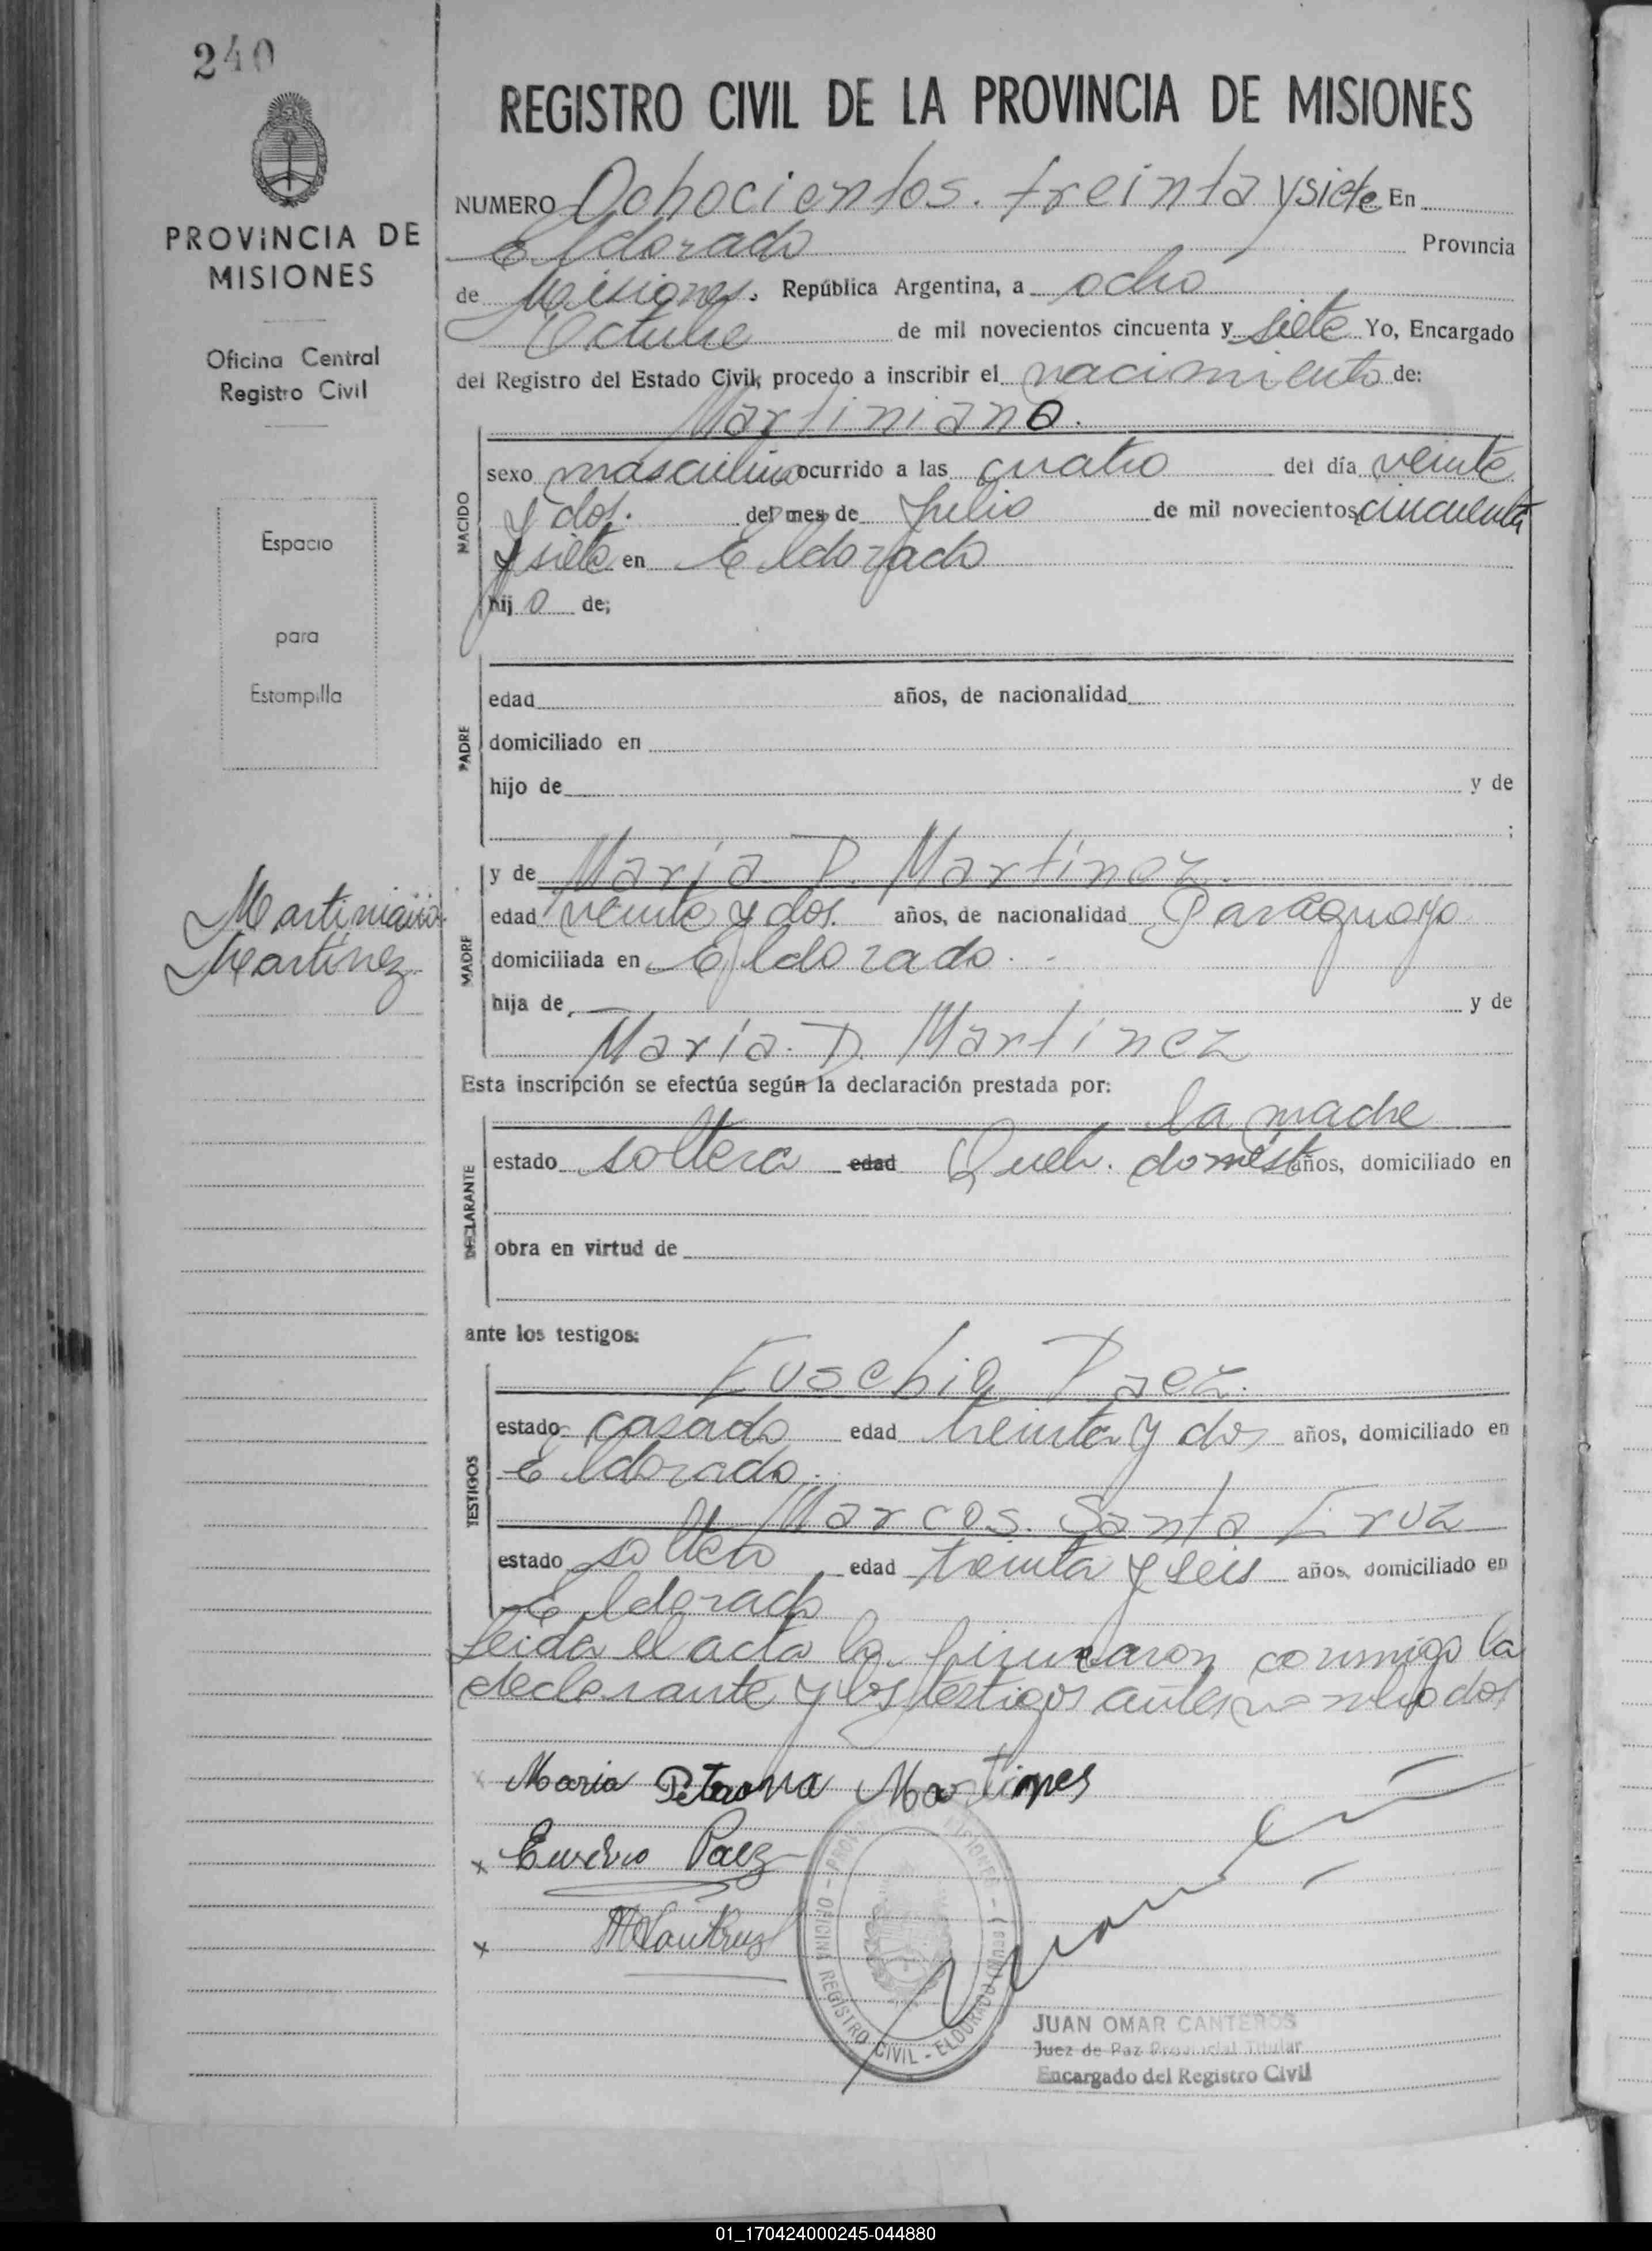 240
PROVINCIA DE
MISIONES
Oficina Central
Registro Civil
Espacio
para
Estampilla
Martiniano
Martínez
REGISTRO CIVIL DE LA PROVINCIA DE MISIONES
NUMERO Ochocientos. treinta y siete En
Eldorado Provincia
de Misiones. República Argentina, a ocho
Octubre de mil novecientos cincuenta y siete Yo, Encargado
del Registro del Estado Civil, procedo a inscribir el nacimiento de:
Martiniano.
NACIDO
sexo masculino ocurrido a las cuatro del día veinte
y dos. del mes de Julio de mil novecientos cincuenta
y siete en Eldorado
hij o de;
PADRE
edad años, de nacionalidad
domiciliado en
hijo de y de
;
MADRE
y de Maria P. Martinez.
edad veinte y dos. años, de nacionalidad Paraguaya
domiciliada en Eldorado.
hija de, y de
María. P. Martinez
Esta inscripción se efectúa según la declaración prestada por:
la madre
DECLARANTE
estado soltera edad Queh. domést años, domiciliado en
obra en virtud de
ante los testigos:
TESTIGOS
Eusebio Paez.
estado casado edad treinta y dos años, domiciliado en
Eldorado.
Marcos. Santa Cruz
estado soltero edad treinta y seis años, domiciliado en
Eldorado
Leida el acta la firmaron conmigo la
declarante y los testigos antes nombrados
Maria Petrona Martines
x Eusevio Paez
x
JUAN OMAR CANTEROS
Juez de Paz Provincial Titular
Encargado del Registro Civil
OFICINA REGISTRO CIVIL - ELDORADO
01_170424000245-044880